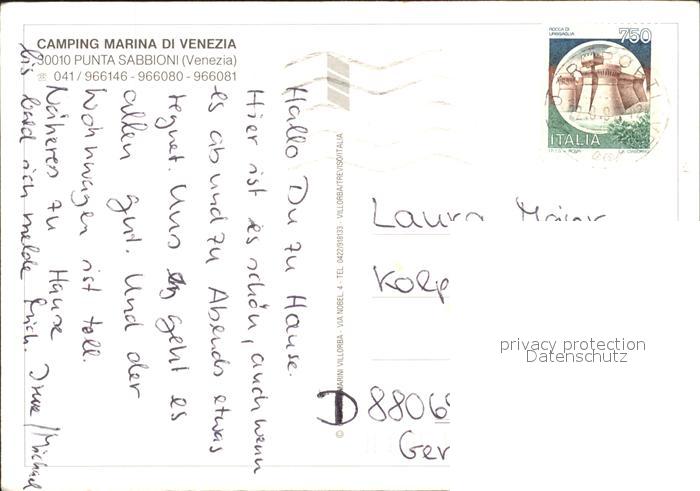 CAMPING MARINA DI VENEZIA
30010 PUNTA SABBIONI (Venezia)
☏ 041 / 966146 - 966080 - 966081
Hallo Du zu Hause.
Hier ist es schön, auch wenn
es ab und zu Abends etwas
regnet. Uns geht es
allen gut. Und der
Wohnwagen ist toll.
Näheres zu Hause
bis bald ich melde mich. /Michael
MARINI VILLORBA - VIA NOBEL, 4 - TEL. 0422/918133 - VILLORBA/TREVISO/ITALIA
ROCCA DI
URBISAGLIA
750
ITALIA
Laura
Kolp
D 8806
Ger
privacy protection
Datenschutz